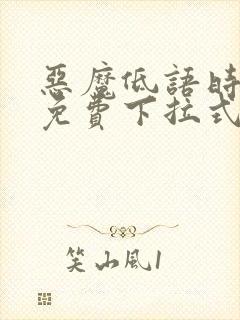 惡魔低語時
免費下拉式
笑山風1